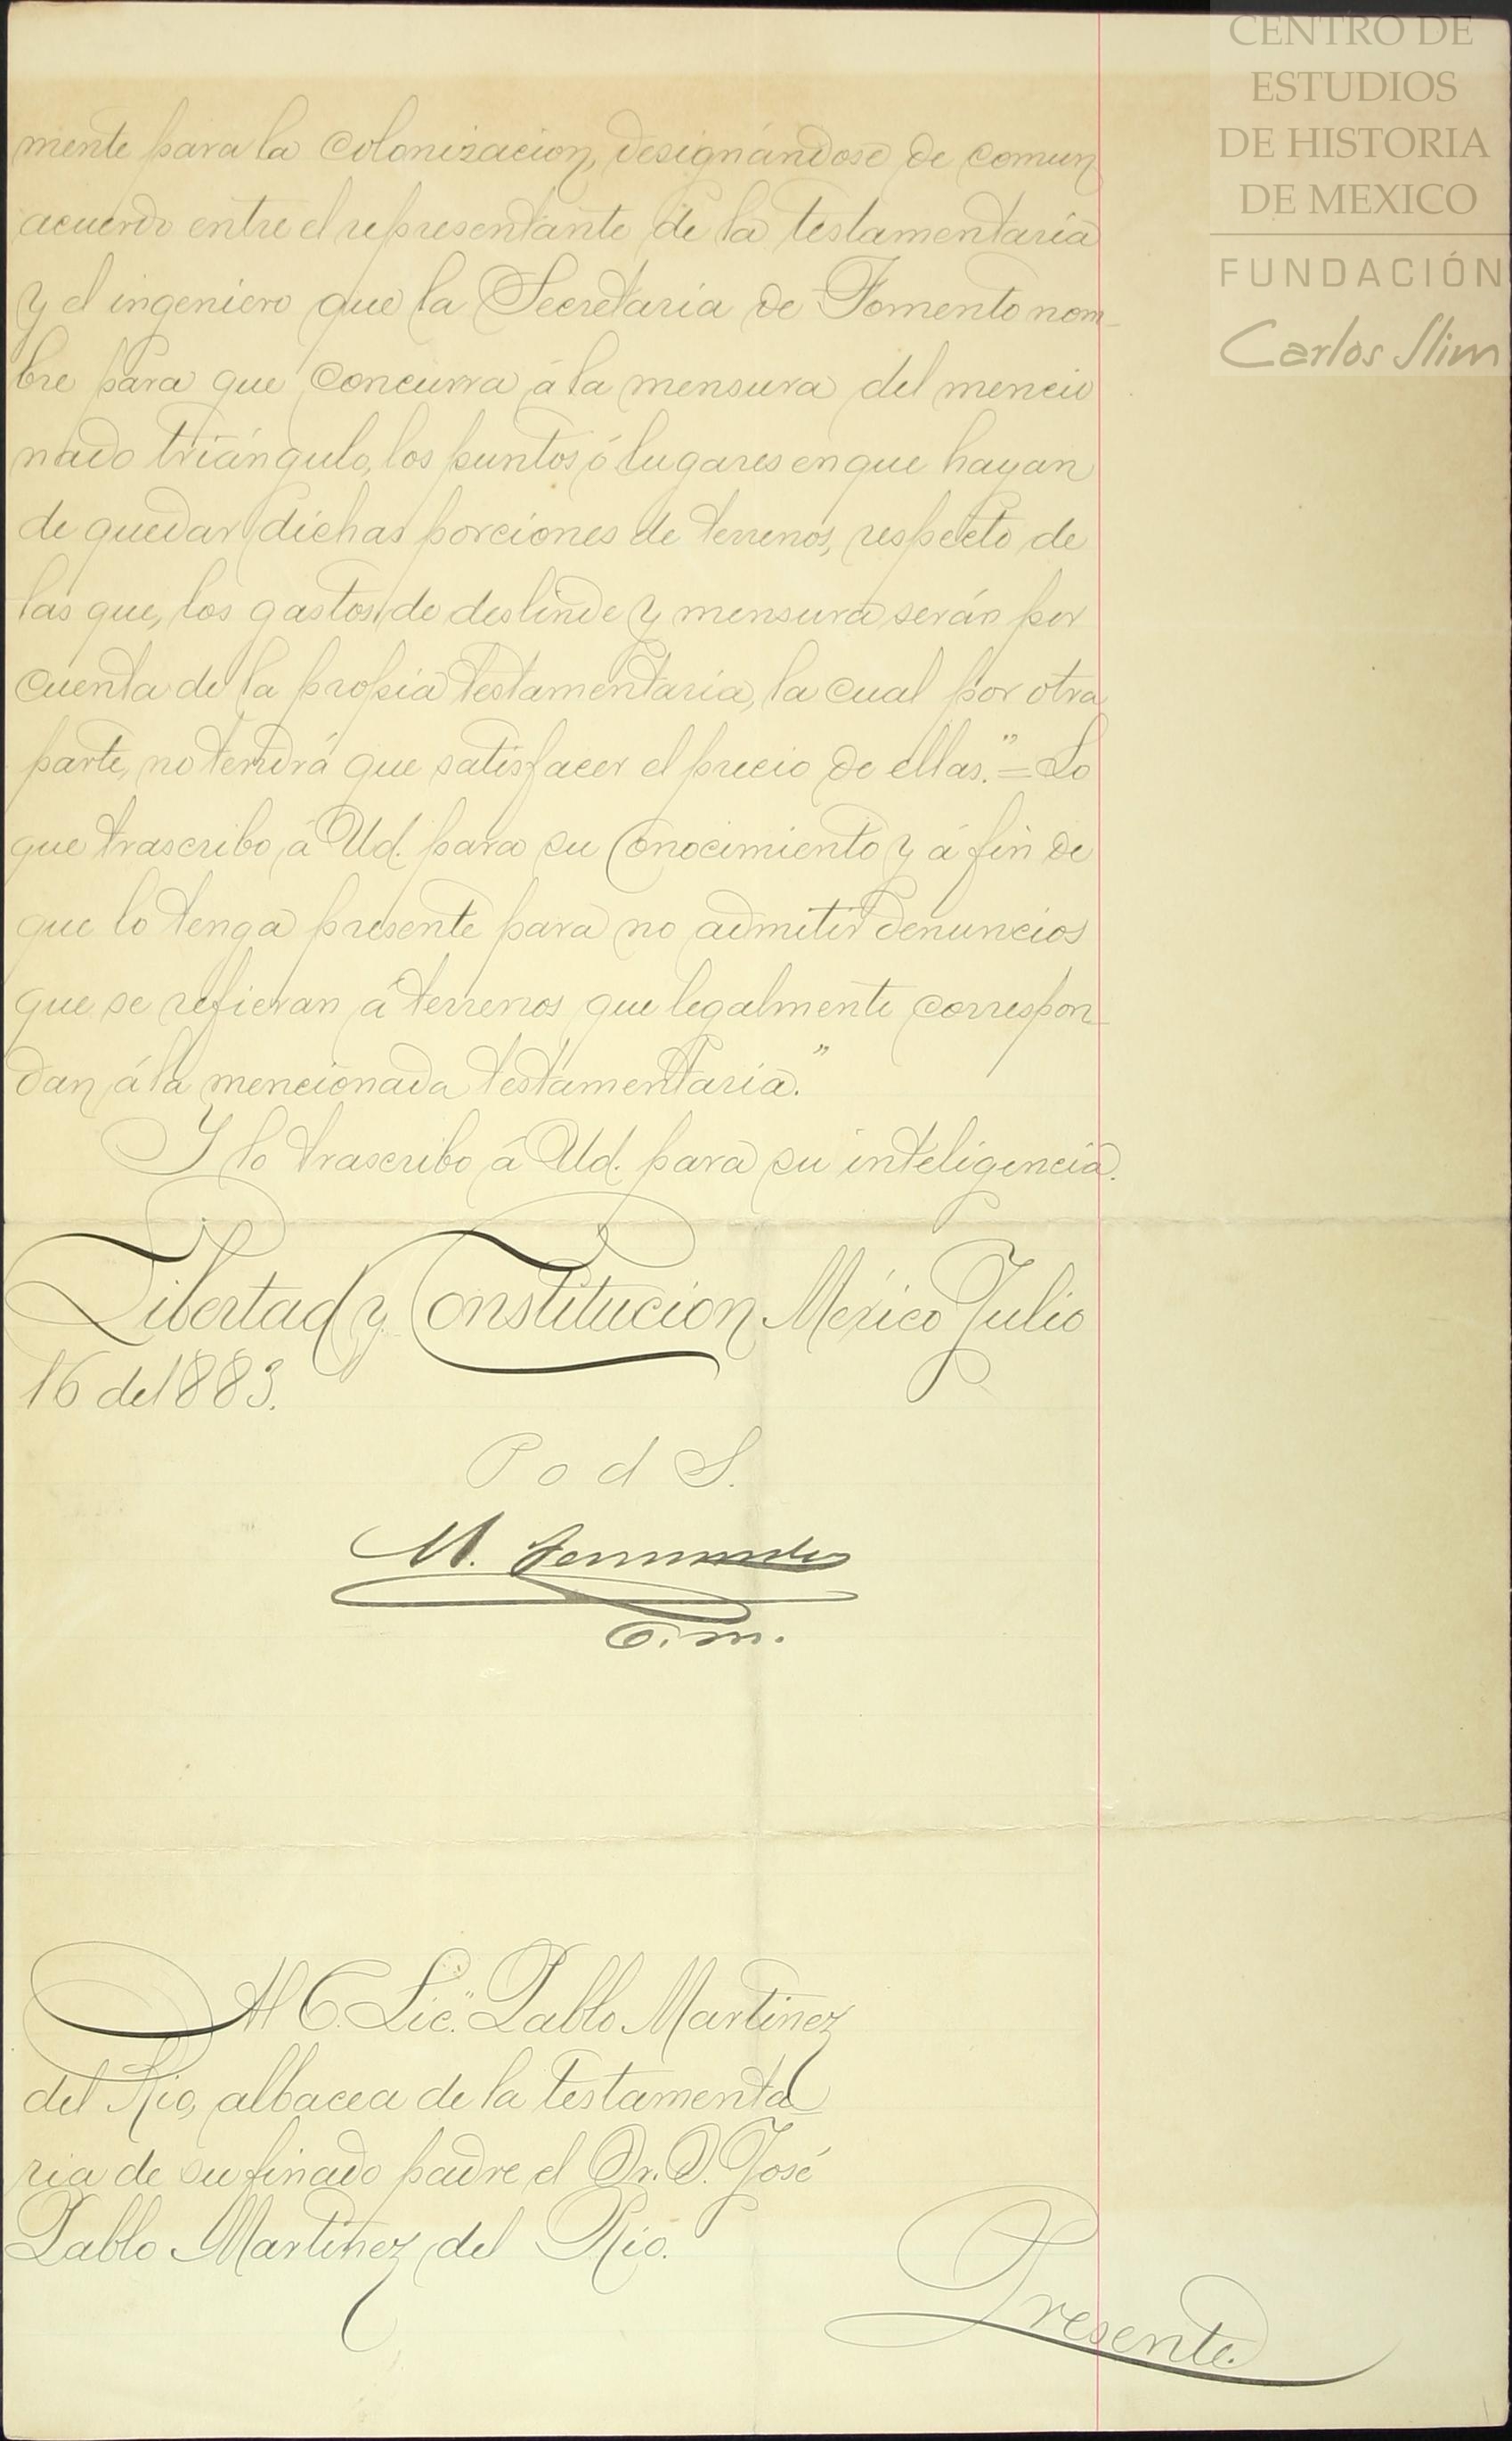 CENTRO DE
ESTUDIOS
DE HISTORIA
DE MEXICO
FUNDACIÓN
Carlos Slim
mente para la colonizacion, designándose de comun
acuerdo entre el representante de la testamentaría
y el ingeniero que la Secretaría de Fomento nom-
bre para que concurra á la mensura del mencio
nado triángulo, los puntos ó lugares en que hayan
de quedar dichas porciones de terrenos, respecto de
las que, los gastos de deslinde y mensura serán por
cuenta de la propia testamentaria, la cual por otra
parte, no tendrá que satisfacer el precio de ellas." = Lo
que trascribo á Ud. para su conocimiento y á fin de
que lo tenga presente para no admitir denuncios
que se refieran á terrenos que legalmente correspon-
dan á la mencionada testamentaria."
Y lo trascribo á Ud. para su inteligencia.
Libertad y Constitucion. México Julio
16 de 1883.
P o d S.
M. Fernandez
O. m.
Al C. Lic. Pablo Martinez
del Rio, albacea de la testamenta
ria de su finado padre el Dr. D. José
Pablo Martinez del Rio.
Presente.